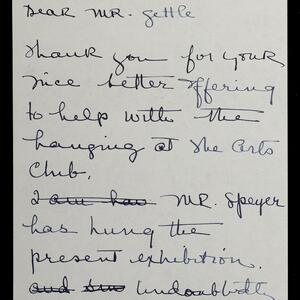 Dear MR. Gettle
Thank you for your
nice letter offering
to help with the
hanging at The Arts
Club.
I am has MR. Speyer
has hung the
present exhibition.
and Undoubtedly